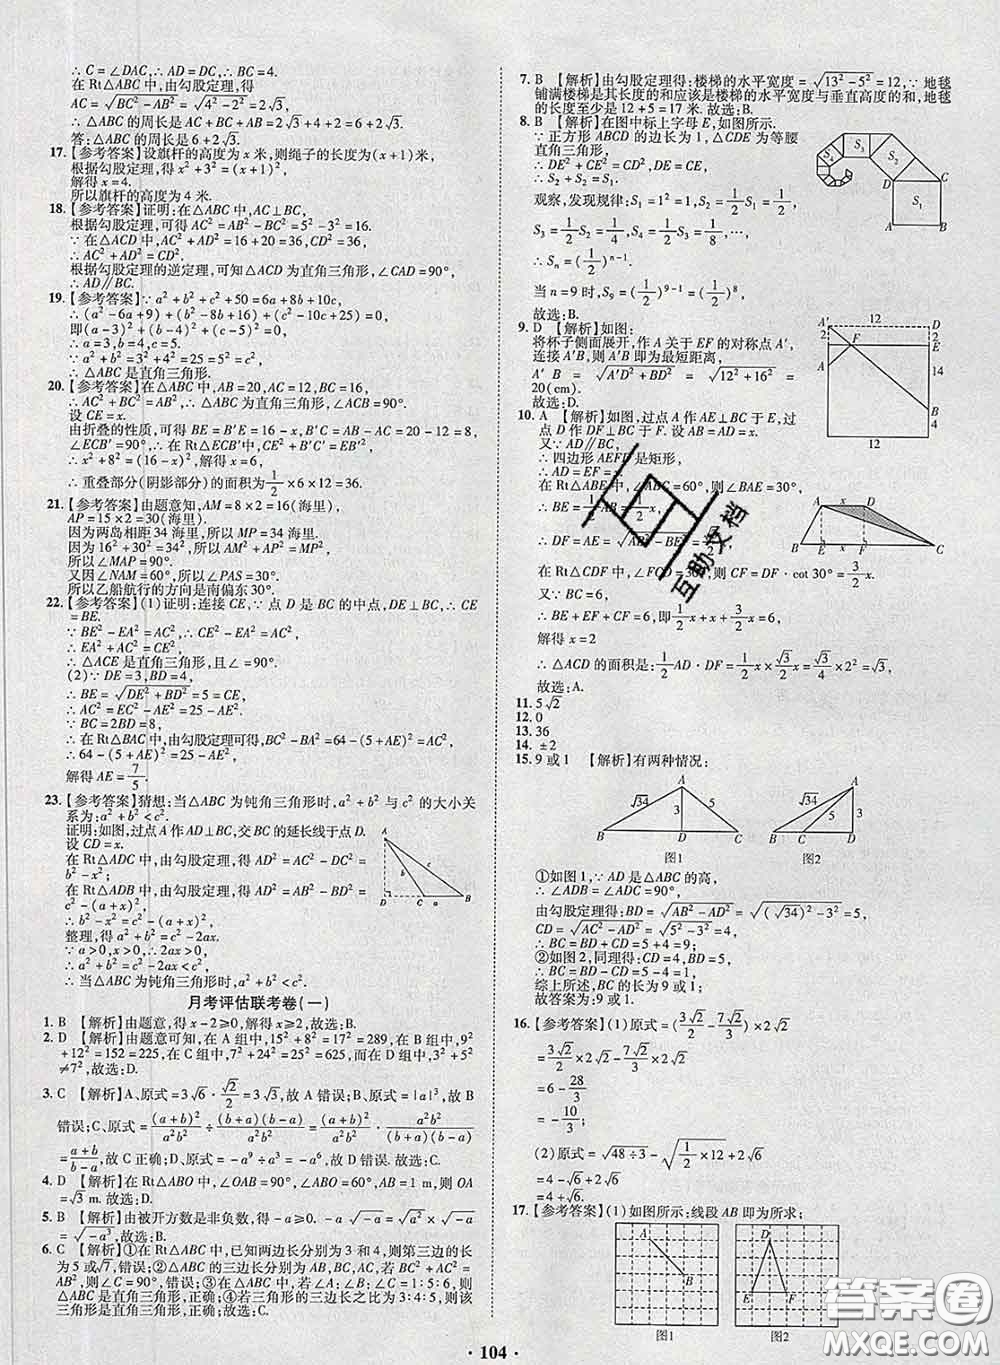 ∴ C = ∠DAC, ∴ AD = DC, ∴ BC = 4.
在 Rt△ABC 中, 由勾股定理, 得
AC = √(BC² − AB²) = √(4² − 2²) = 2√3,
∴ △ABC 的周长是 AC + BC + AB = 2√3 + 4 + 2 = 6 + 2√3.
答: △ABC 的周长是 6 + 2√3.
17.【参考答案】设旗杆的高度为 x 米, 则绳子的长度为(x + 1)米,
根据勾股定理, 得 x² + 3² = (x + 1)²,
解得 x = 4.
所以旗杆的高度为 4 米.
18.【参考答案】证明: 在△ABC 中, AC⊥BC,
根据勾股定理, 可得 AC² = AB² − BC² = 5² − 3² = 16.
∵ 在△ACD 中, AC² + AD² = 16 + 20 = 36, CD² = 36,
∴ AC² + AD² = CD².
根据勾股定理的逆定理, 可知△ACD 为直角三角形, ∠CAD = 90°,
∴ AD∥BC.
19.【参考答案】∵ a² + b² + c² + 50 = 6a + 8b + 10c,
∴ (a² − 6a + 9) + (b² − 8b + 16) + (c² − 10c + 25) = 0,
即(a − 3)² + (b − 4)² + (c − 5)² = 0,
∴ a = 3, b = 4, c = 5.
∵ a² + b² = 3² + 4² = 25 = 5² = c²,
∴ △ABC 是直角三角形.
20.【参考答案】在△ABC 中, AB = 20, AC = 12, BC = 16,
∴ AC² + BC² = AB², ∴ △ABC 是直角三角形, ∠ACB = 90°.
设 CE = x.
由折叠的性质, 可得 BE = B′E = 16 − x, B′C = AB′ − AC = 20 − 12 = 8,
∠ECB′ = 90°, ∴ 在 Rt△ECB′ 中, CE² + B′C² = B′E²,
∴ x² + 8² = (16 − x)², 解得 x = 6,
∴ 重叠部分(阴影部分)的面积为 1/2 × 6 × 12 = 36.
21.【参考答案】由题意知, AM = 8 × 2 = 16(海里),
AP = 15 × 2 = 30(海里).
因为两岛相距 34 海里, 所以 MP = 34 海里.
因为 16² + 30² = 34², 所以 AM² + AP² = MP²,
所以∠MAP = 90°.
又因∠NAM = 60°, 所以∠PAS = 30°.
所以乙船航行的方向是南偏东 30°.
22.【参考答案】(1)证明: 连接 CE, ∵ 点 D 是 BC 的中点, DE⊥BC, ∴ CE
= BE.
∵ BE² − EA² = AC², ∴ CE² − EA² = AC²,
∴ EA² + AC² = CE²,
∴ △ACE 是直角三角形, 且∠ = 90°.
(2) ∵ DE = 3, BD = 4,
∴ BE = √(DE² + BD²) = 5 = CE,
∴ AC² = CE² − AE² = 25 − AE².
∵ BC = 2BD = 8,
∴ 在 Rt△BAC 中, 由勾股定理可得, BC² − BA² = 64 − (5 + AE)² = AC²,
∴ 64 − (5 + AE)² = 25 − AE²,
解得 AE = 7/5.
23.【参考答案】猜想: 当△ABC 为钝角三角形时, a² + b² 与 c² 的大小关
系为: a² + b² < c².
证明: 如图, 过点 A 作 AD⊥BC, 交 BC 的延长线于点 D.
设 CD = x.
在 Rt△ADC 中, 由勾股定理, 得 AD² = AC² − DC² =
b² − x²;
在 Rt△ADB 中, 由勾股定理, 得 AD² = AB² − BD² =
c² − (a + x)²,
∴ b² − x² = c² − (a + x)².
整理, 得 a² + b² = c² − 2ax.
∵ a > 0, x > 0, ∴ 2ax > 0,
∴ a² + b² < c²,
∴ 当△ABC 为钝角三角形时, a² + b² < c².
A
c
b
D C a B
月考评估联考卷(一)
1. B 【解析】由题意, 得 x − 2 ≥ 0, 解得 x ≥ 2, 故选: B.
2. D 【解析】由题意可知, 在 A 组中, 15² + 8² = 17² = 289, 在 B 组中, 9²
+ 12² = 152 = 225, 在 C 组中, 7² + 24² = 25² = 625, 在 D 组中, 3² + 5²
≠ 7², 故选: D.
3. C 【解析】A、原式 = 3√6 · √2/2 = 3√3, 故 A 错误; B、原式 = |a|³, 故 B
错误; C、原式 = (a+b)²/a²b² ÷ (b+a)(b−a)/a²b² = (a+b)²/a²b² · a²b²/(b+a)(b−a)
= (a+b)/(b−a), 故 C 正确; D、原式 = −a⁹ ÷ a³ = −a⁶, 故 D 错误. 故选: C.
4. D 【解析】在 Rt△ABO 中, ∠OAB = 90°, ∠ABO = 60°, AB = 1 m, 则 OA
= √3 m. 故选: D.
5. B 【解析】由被开方数是非负数, 得 −a ≥ 0. −a√−a = √a² × √−a =
√−a³, 故选: B.
6. C 【解析】①在 Rt△ABC 中, 已知两边长分别为 3 和 4, 则第三边的长
为 5 或 √7, 错误; ②△ABC 的三边长分别为 AB, BC, AC, 若 BC² + AC²
= AB², 则∠C = 90°, 正确; ③在△ABC 中, 若∠A:∠B:∠C = 1:5:6, 则
△ABC 是直角三角形, 正确; ④若三角形的三边长之比为 3:4:5, 则该
三角形是直角三角形, 正确; 故选: C.
7. B 【解析】由勾股定理得: 楼梯的水平宽度 = √(13² − 5²) = 12, ∵ 地毯
铺满楼梯是其长度的和应该是楼梯的水平宽度与垂直高度的和, 地毯
的长度至少是 12 + 5 = 17 米. 故选: B.
8. B 【解析】在图中标上字母 E, 如图所示.
∵ 正方形 ABCD 的边长为 1, △CDE 为等腰
直角三角形,
∴ DE² + CE² = CD², DE = CE,
∴ S₂ + S₂ = S₁.
观察, 发现规律: S₁ = 1² = 1, S₂ = 1/2 S₁ = 1/2,
S₃ = 1/2 S₂ = 1/4, S₄ = 1/2 S₃ = 1/8, …,
∴ Sₙ = (1/2)ⁿ⁻¹.
当 n = 9 时, S₉ = (1/2)⁹⁻¹ = (1/2)⁸,
故选: B.
E
S₃
S₂
D C
S₁
A B
9. D 【解析】如图:
将杯子侧面展开, 作 A 关于 EF 的对称点 A′,
连接 A′B, 则 A′B 即为最短距离.
A′B = √(A′D² + BD²) = √(12² + 16²) =
20(cm).
故选: D.
A′ 12 D
2 F 2
E
A 14
B
4
12
10. A 【解析】如图, 过点 A 作 AE⊥BC 于 E, 过
点 D 作 DF⊥BC 于 F. 设 AB = AD = x.
又∵ AD∥BC,
∴ 四边形 AEFD 是矩形,
∴ AD = EF = x.
在 Rt△ABE 中, ∠ABC = 60°, 则∠BAE = 30°,
∴ BE = 1/2 AB = 1/2 x,
∴ DF = AE = √(AB² − BE²) = √3/2 x,
在 Rt△CDF 中, ∠FCD = 30°, 则 CF = DF · cot 30° = 3/2 x.
又∵ BC = 6,
∴ BE + EF + CF = 6, 即 1/2 x + x + 3/2 x = 6,
解得 x = 2
∴ △ACD 的面积是: 1/2 AD · DF = 1/2 x × √3/2 x = √3/4 × 2² = √3,
故选: A.
A x D
B E x F C
11. 5√2
12. 0
13. 36
14. ±2
15. 9 或 1 【解析】有两种情况:
A
√34 3 5
B D C
图1
A
√34 5 3
B C D
图2
①如图 1, ∵ AD 是△ABC 的高,
∴ ∠ADB = ∠ADC = 90°,
由勾股定理得: BD = √(AB² − AD²) = √((√34)² − 3²) = 5,
CD = √(AC² − AD²) = √(5² − 3²) = 4,
∴ BC = BD + CD = 5 + 4 = 9;
②如图 2, 同理得: CD = 4, BD = 5,
∴ BC = BD − CD = 5 − 4 = 1,
综上所述, BC 的长为 9 或 1;
故答案为: 9 或 1.
16.【参考答案】(1)原式 = (3√2/2 − 7√2/3) × 2√2
= 3√2/2 × 2√2 − 7√2/3 × 2√2
= 6 − 28/3
= −10/3;
(2)原式 = √(48 ÷ 3) − √(1/2 × 12) + 2√6
= 4 − √6 + 2√6
= 4 + √6.
17.【参考答案】(1)如图所示: 线段 AB 即为所求;
A
B
图1
D
E F
图2
互助文档
答案圈
MXQE.COM
· 104 ·